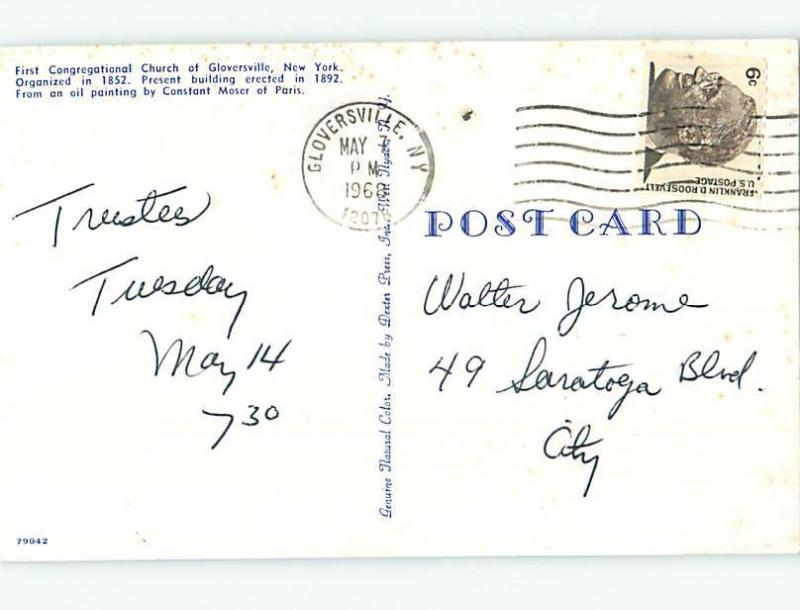 First Congregational Church of Gloversville, New York.
Organized in 1852. Present building erected in 1892.
From an oil painting by Constant Moser of Paris.
GLOVERSVILLE, NY
MAY
PM
1968
12078
6c
FRANKLIN D. ROOSEVELT
U.S. POSTAGE
POST CARD
Trustees
Tuesday
May 14
7 30
Genuine Natural Color. Made by Dexter Press, Inc. West Nyack, N. Y.
Walter Jerome
49 Saratoga Blvd.
City
79042